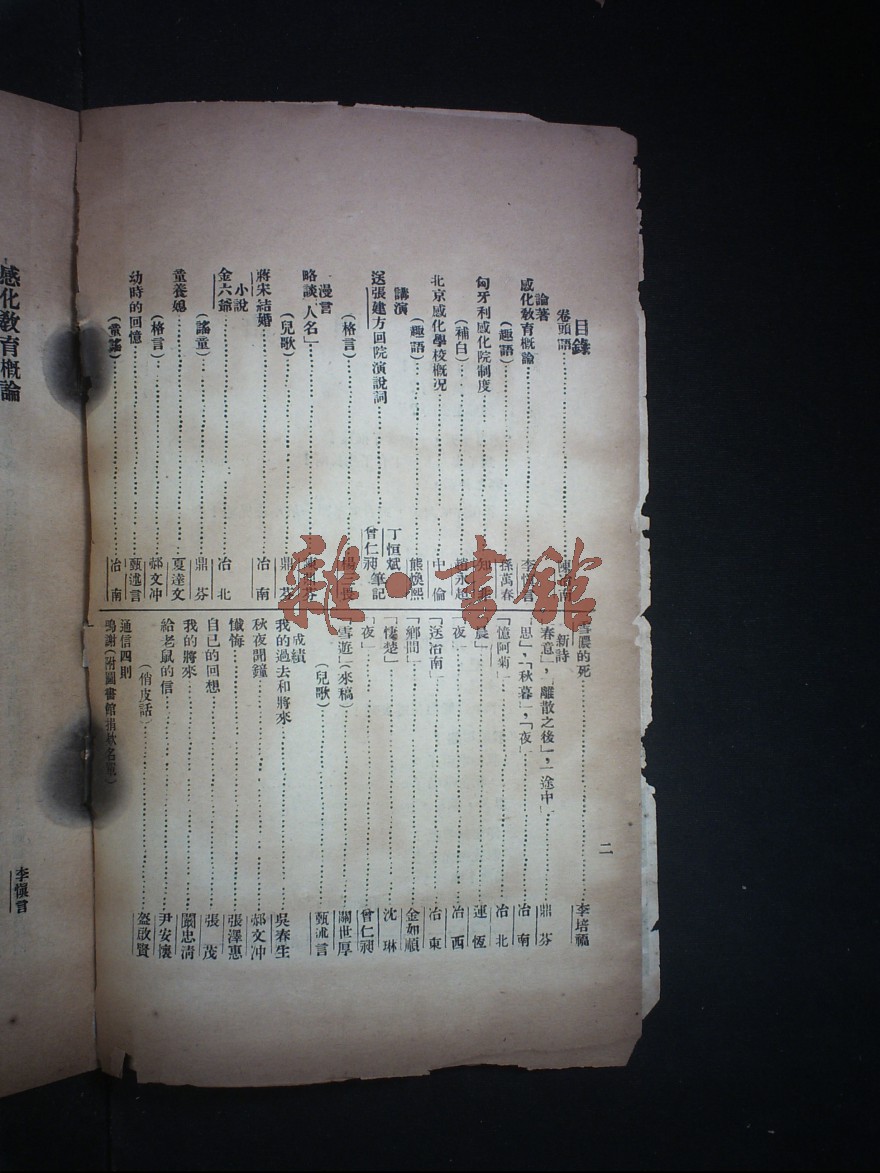 目錄
卷頭語
論著
感化教育概論 李愼言
(趣語) 孫萬春
匈牙利感化院制度
(補白) 趙永超
北京感化學校概況 中倫
(趣語) 熊煥熙
講演
送張建方回院演說詞 丁恒斌 曾仁昶 筆記
(格言)
漫言
略談「人名」
(兒歌) 鼎芬
蔣宋結婚 冶南
小說
金六爺 冶北
(謠童) 鼎芬
童養媳 夏達文
(格言) 郝文冲
幼時的回憶 甄述言
(童謠) 冶南
雪儂的死 李培福
新詩
「春意」,離散之後」,「途中」 鼎芬
「思」,「秋暮」,「夜」 冶南
「憶阿菊」 冶北
「晨」 運恆
「夜」 冶西
「送冶南」 冶東
「鄉間」 金如順
「悽楚」 沈琳
「夜」 曾仁昶
「雪遊」(來稿) 關世厚
(兒歌) 甄述言
成績
我的過去和將來 吳春生
秋夜聞鐘 郝文冲
懺悔 張澤惠
自已的回想 張茂
我的將來 嚴忠淸
給老鼠的信 尹安懷
(俏皮話) 盔啟賢
通信四則
鳴謝(附圖書館捐欵名單)
二
感化教育概論
李愼言
雜·書館